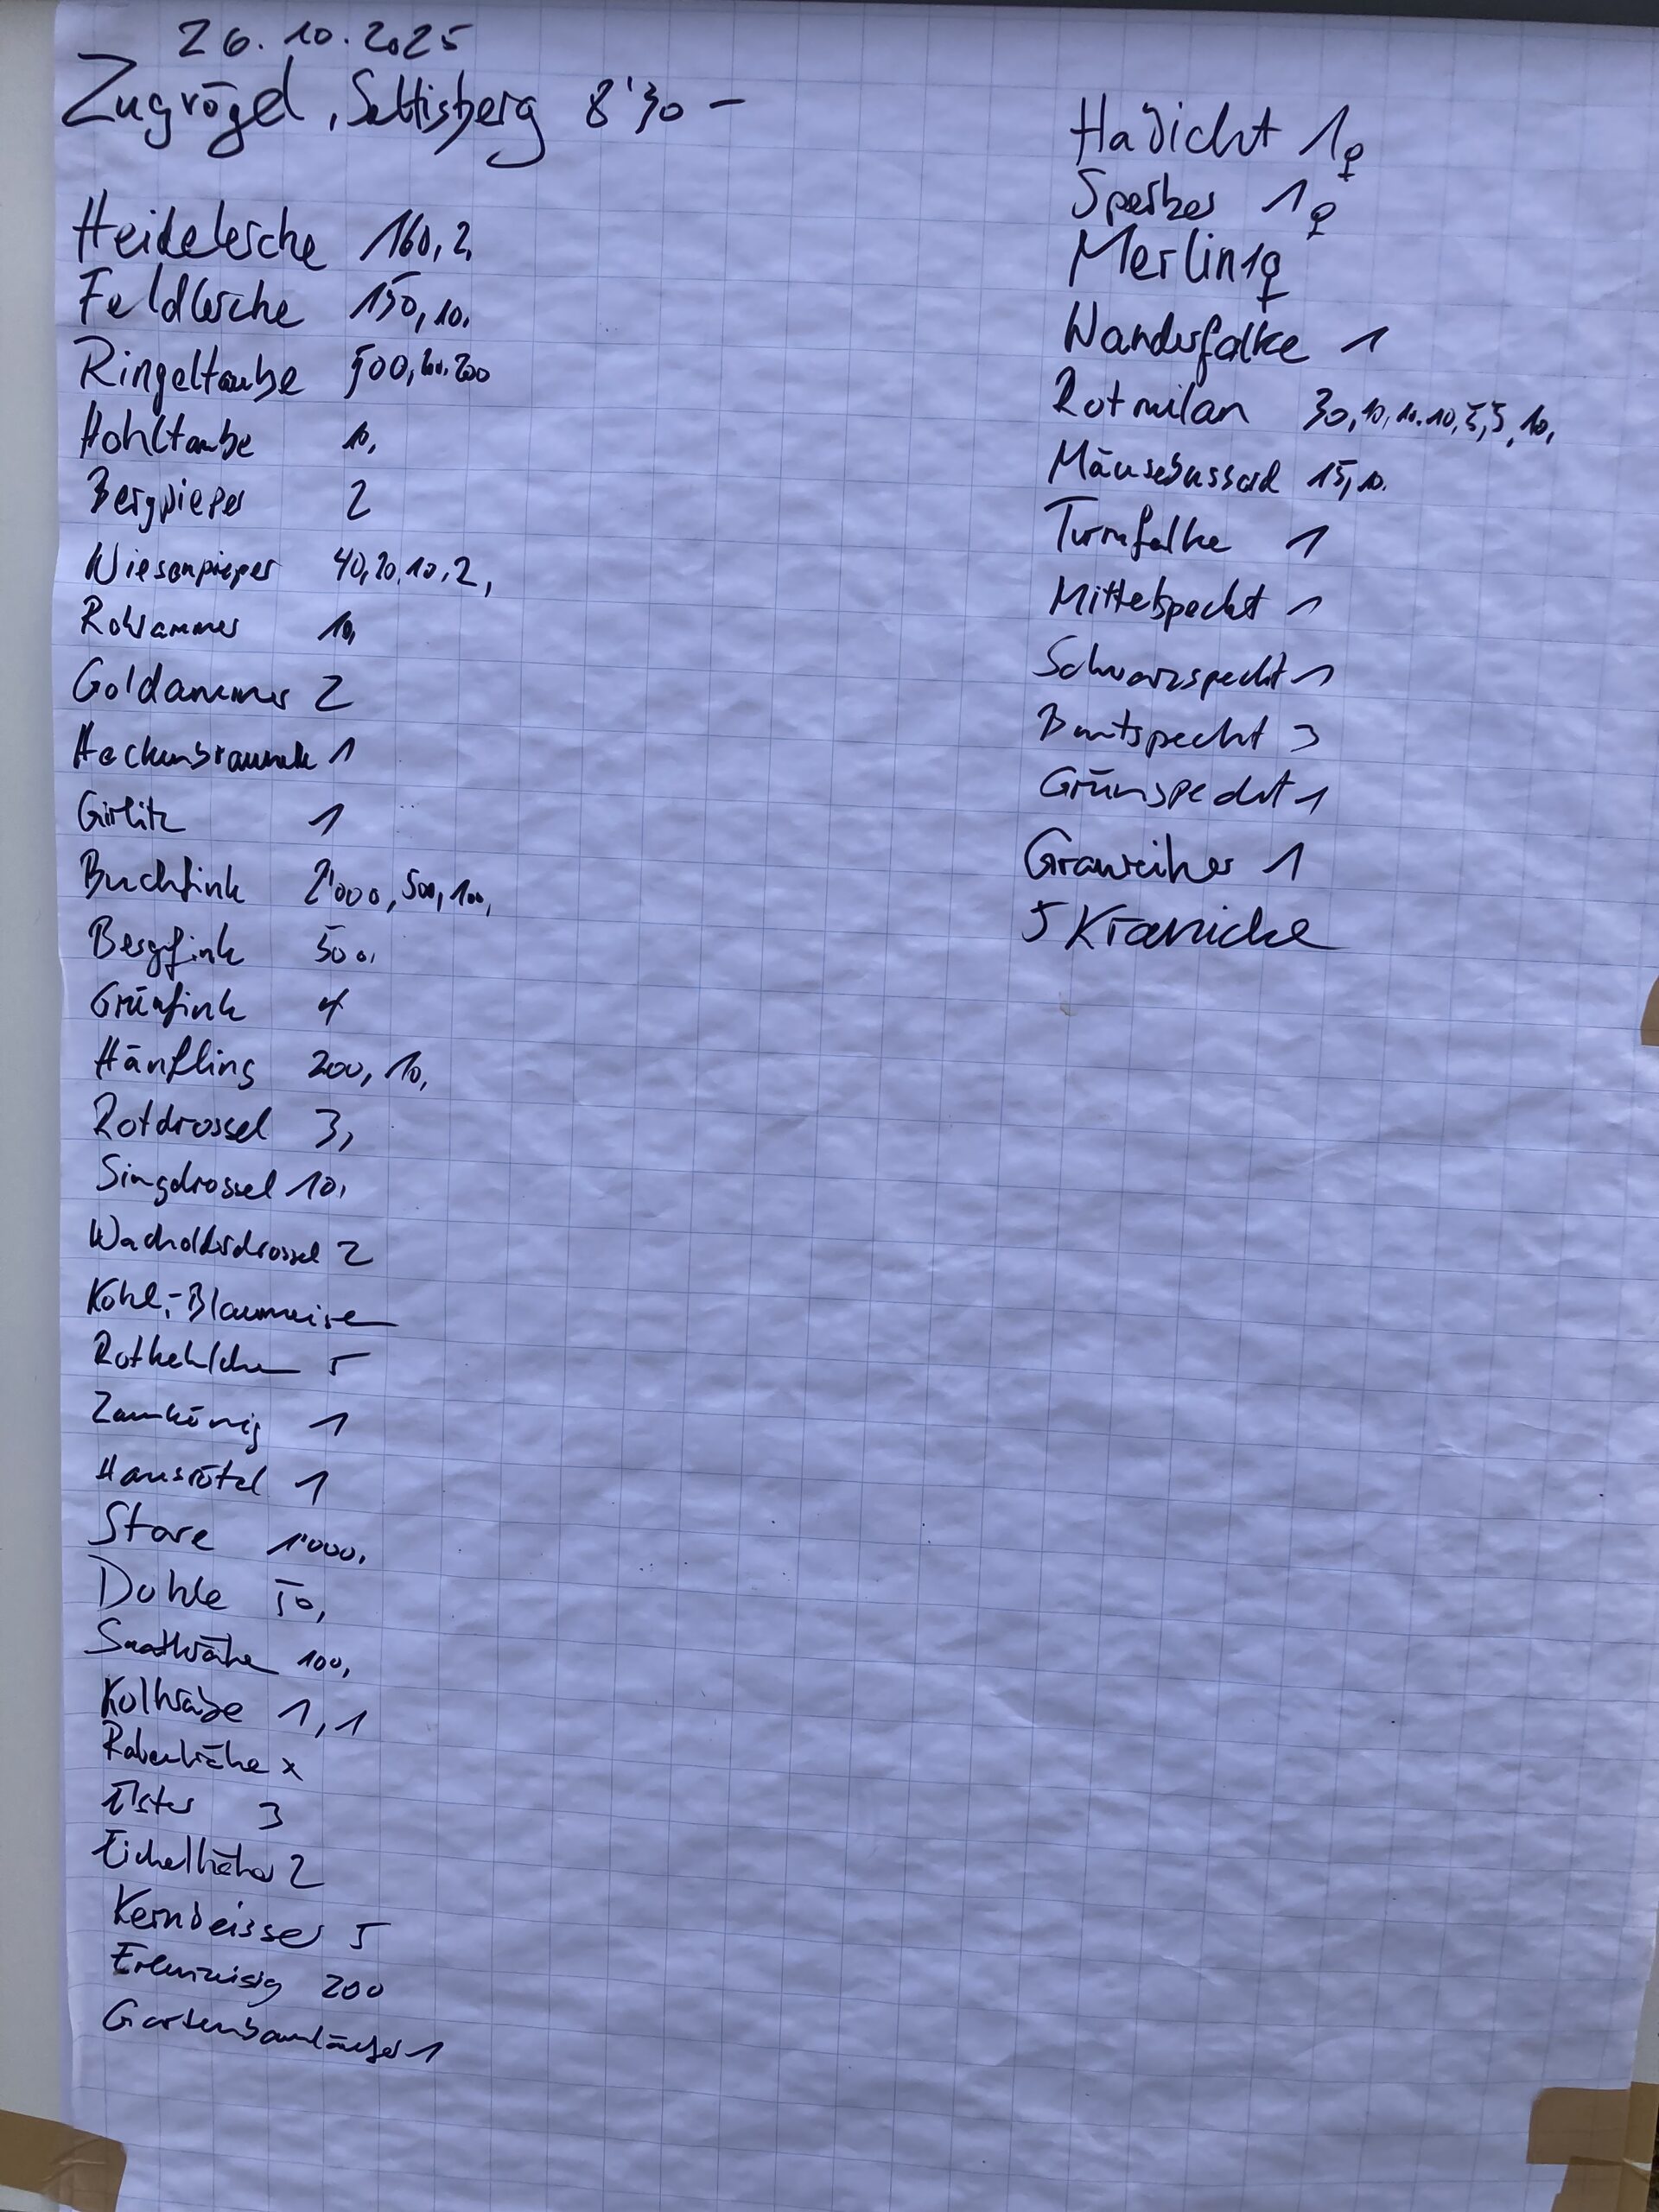 26.10.2025
Zugvögel, Seltisberg 8'30 –
Heidelerche 160, 2,
Feldlerche 150, 10,
Ringeltaube 500, 200, 200
Hohltaube 10,
Bergpieper 2
Wiesenpieper 40, 20, 10, 2,
Rohrammer 10,
Goldammer 2
Heckenbraunelle 1
Girlitz 1
Buchfink 2'000, 500, 100,
Bergfink 50,
Grünfink 4
Hänfling 200, 10,
Rotdrossel 3,
Singdrossel 10,
Wacholderdrossel 2
Kohl,- Blaumeise
Rotkehlchen 5
Zaunkönig 1
Hausrötel 1
Stare 1'000,
Dohle 50,
Saatkrähe 100,
Kolkrabe 1, 1
Rabenkrähe x
Elster 3
Eichelhäher 2
Kernbeisser 5
Erlenzeisig 200
Gartenbaumläufer 1
Habicht 1♀
Sperber 1♀
Merlin 1♀
Wanderfalke 1
Rotmilan 30, 10, 10, 10, 5, 5, 10,
Mäusebussard 15, 10.
Turmfalke 1
Mittelspecht 1
Schwarzspecht 1
Buntspecht 3
Grünspecht 1
Graureiher 1
5 Kraniche